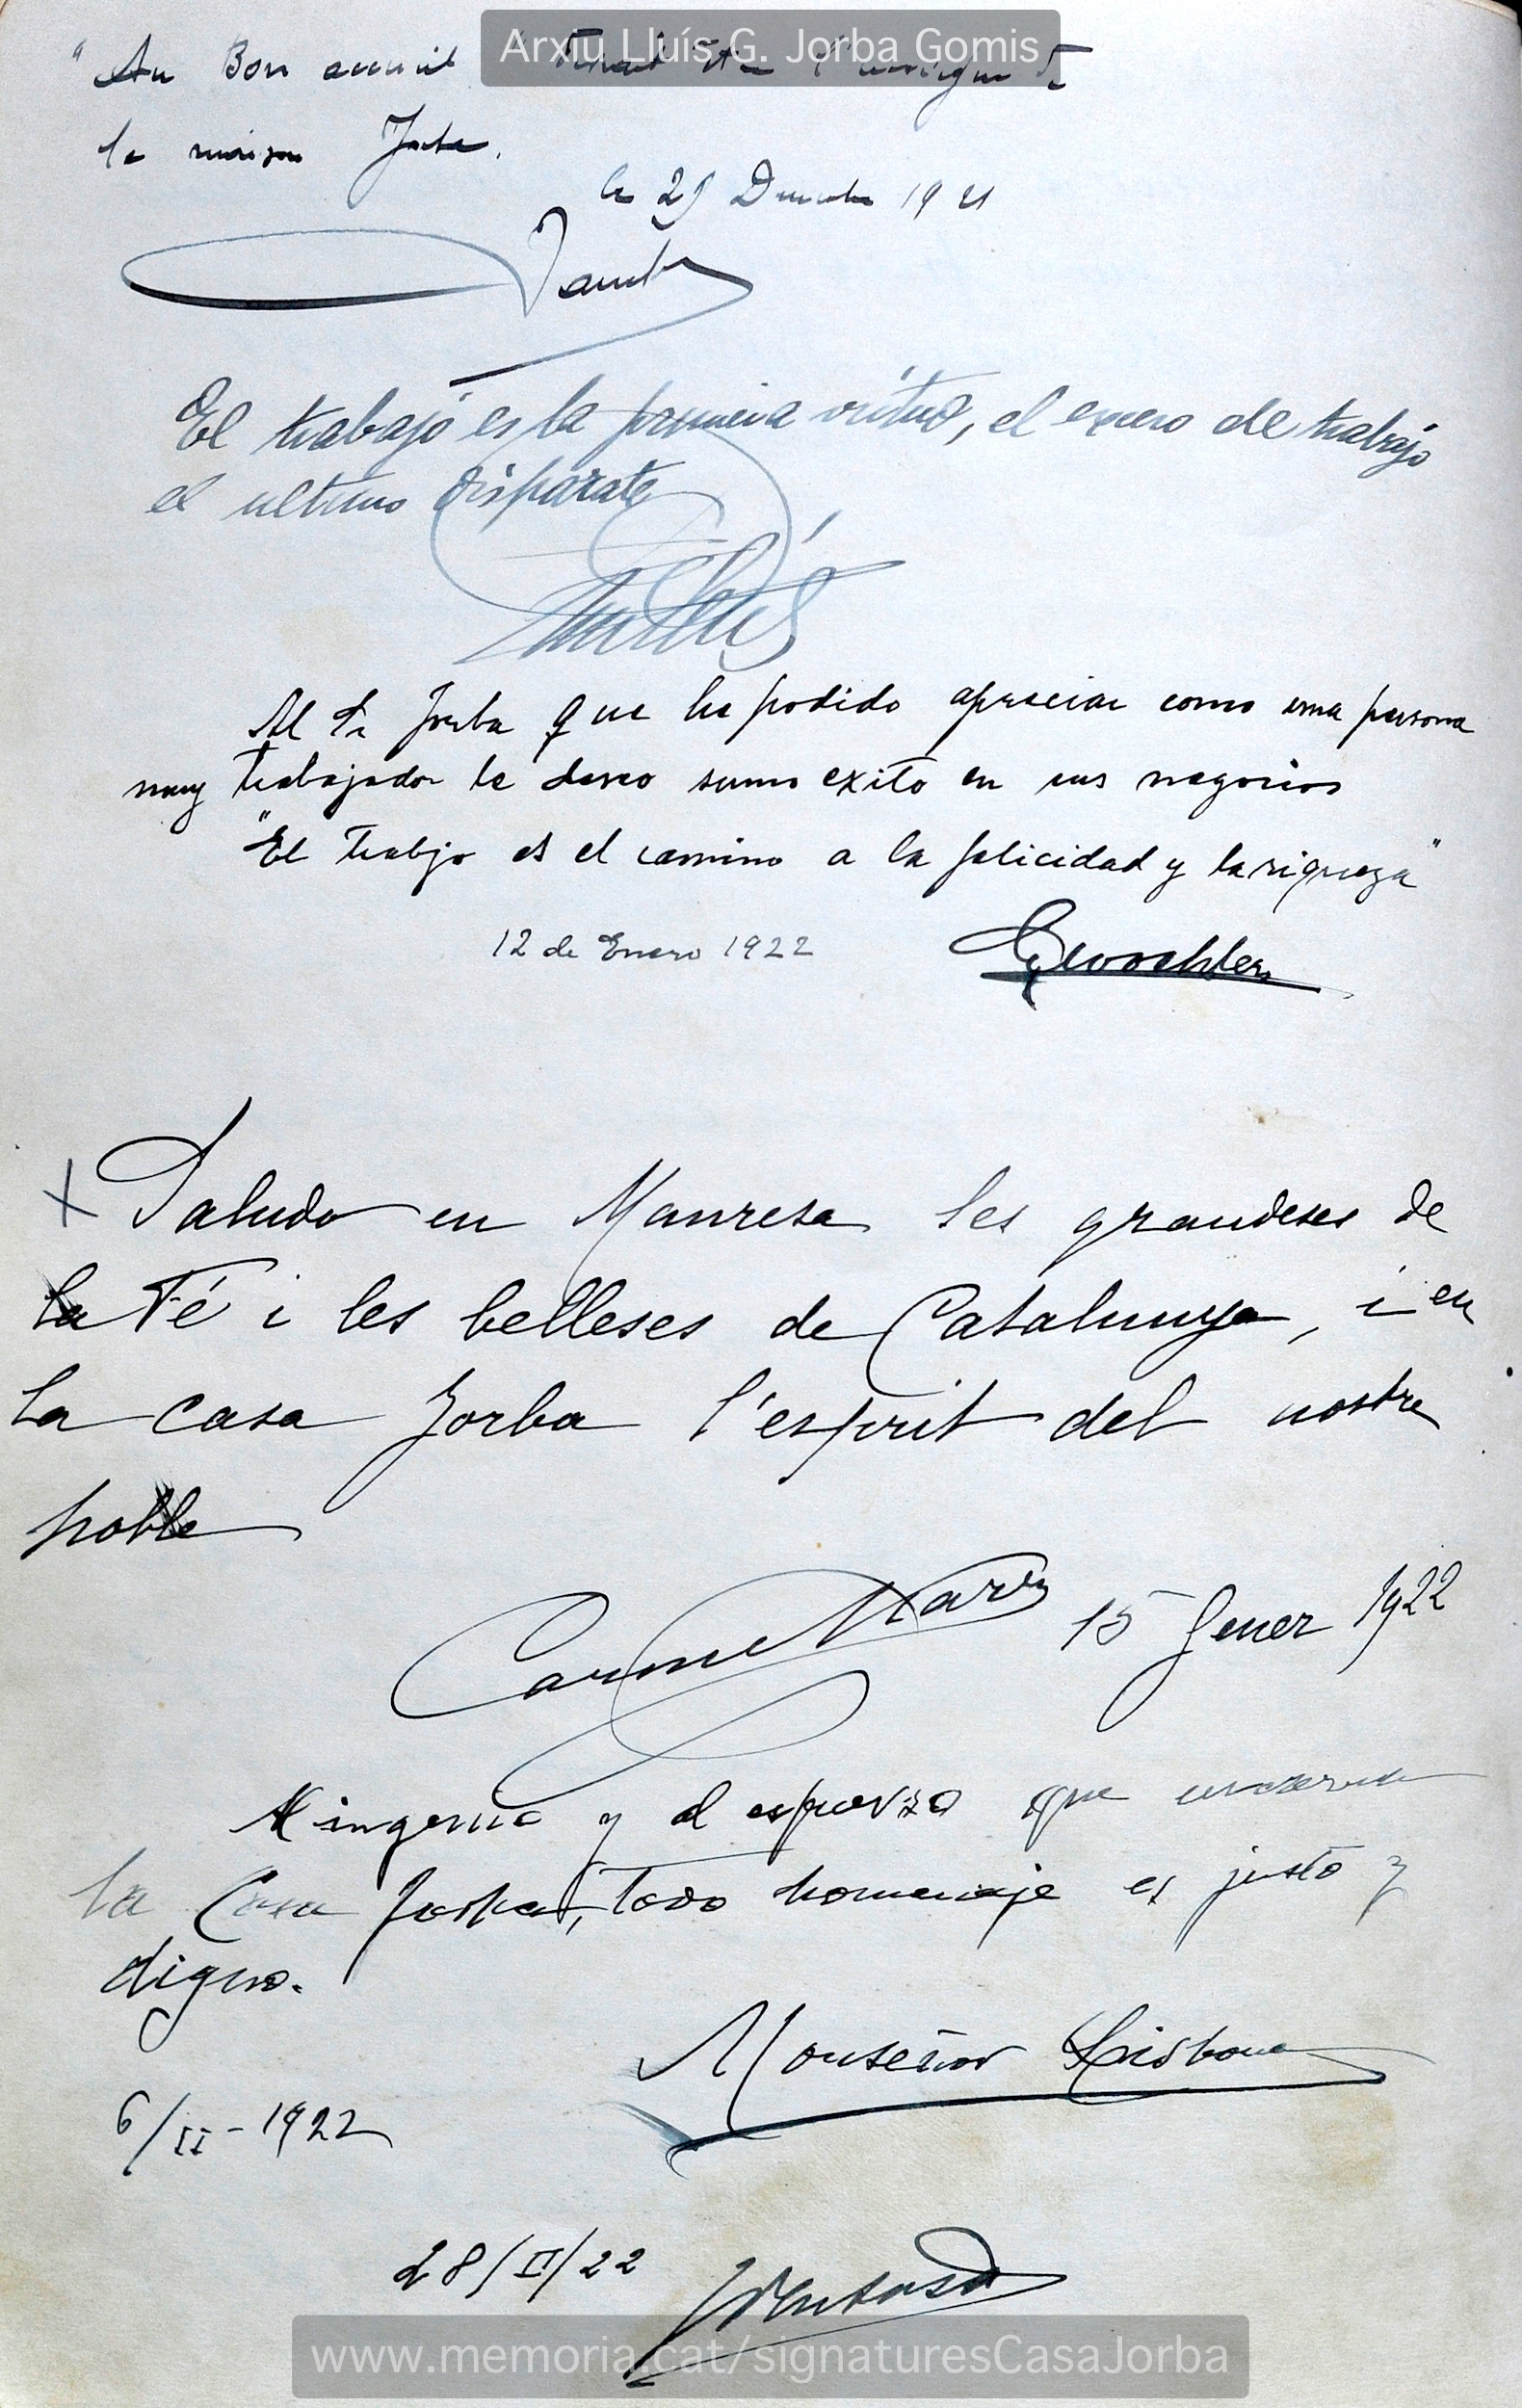 Arxiu Lluís G. Jorba Gomis
"Au Bon accueil
la maison Jorba.
le 29 Decembre 1921
El trabajo es la primera virtud, el exceso de trabajo
el ultimo disparate
Al Sr Jorba que he podido apreciar como una persona
muy trabajador le deseo sumo exito en sus negocios
"El trabjo es el camino a la felicidad y la riqueza"
12 de Enero 1922
Saludo en Manresa les grandeses de
la Fé i les belleses de Catalunya, i en
la casa Jorba l'esprit del nostre
poble
Carme Karr 15 Gener 1922
Al ingenio y al esfuerzo que
la Casa Jorba, todo homenaje es justo y
digno.
Monseñor Lisbona
6/II-1922
28/II/22 Ventosa
www.memoria.cat/signaturesCasaJorba